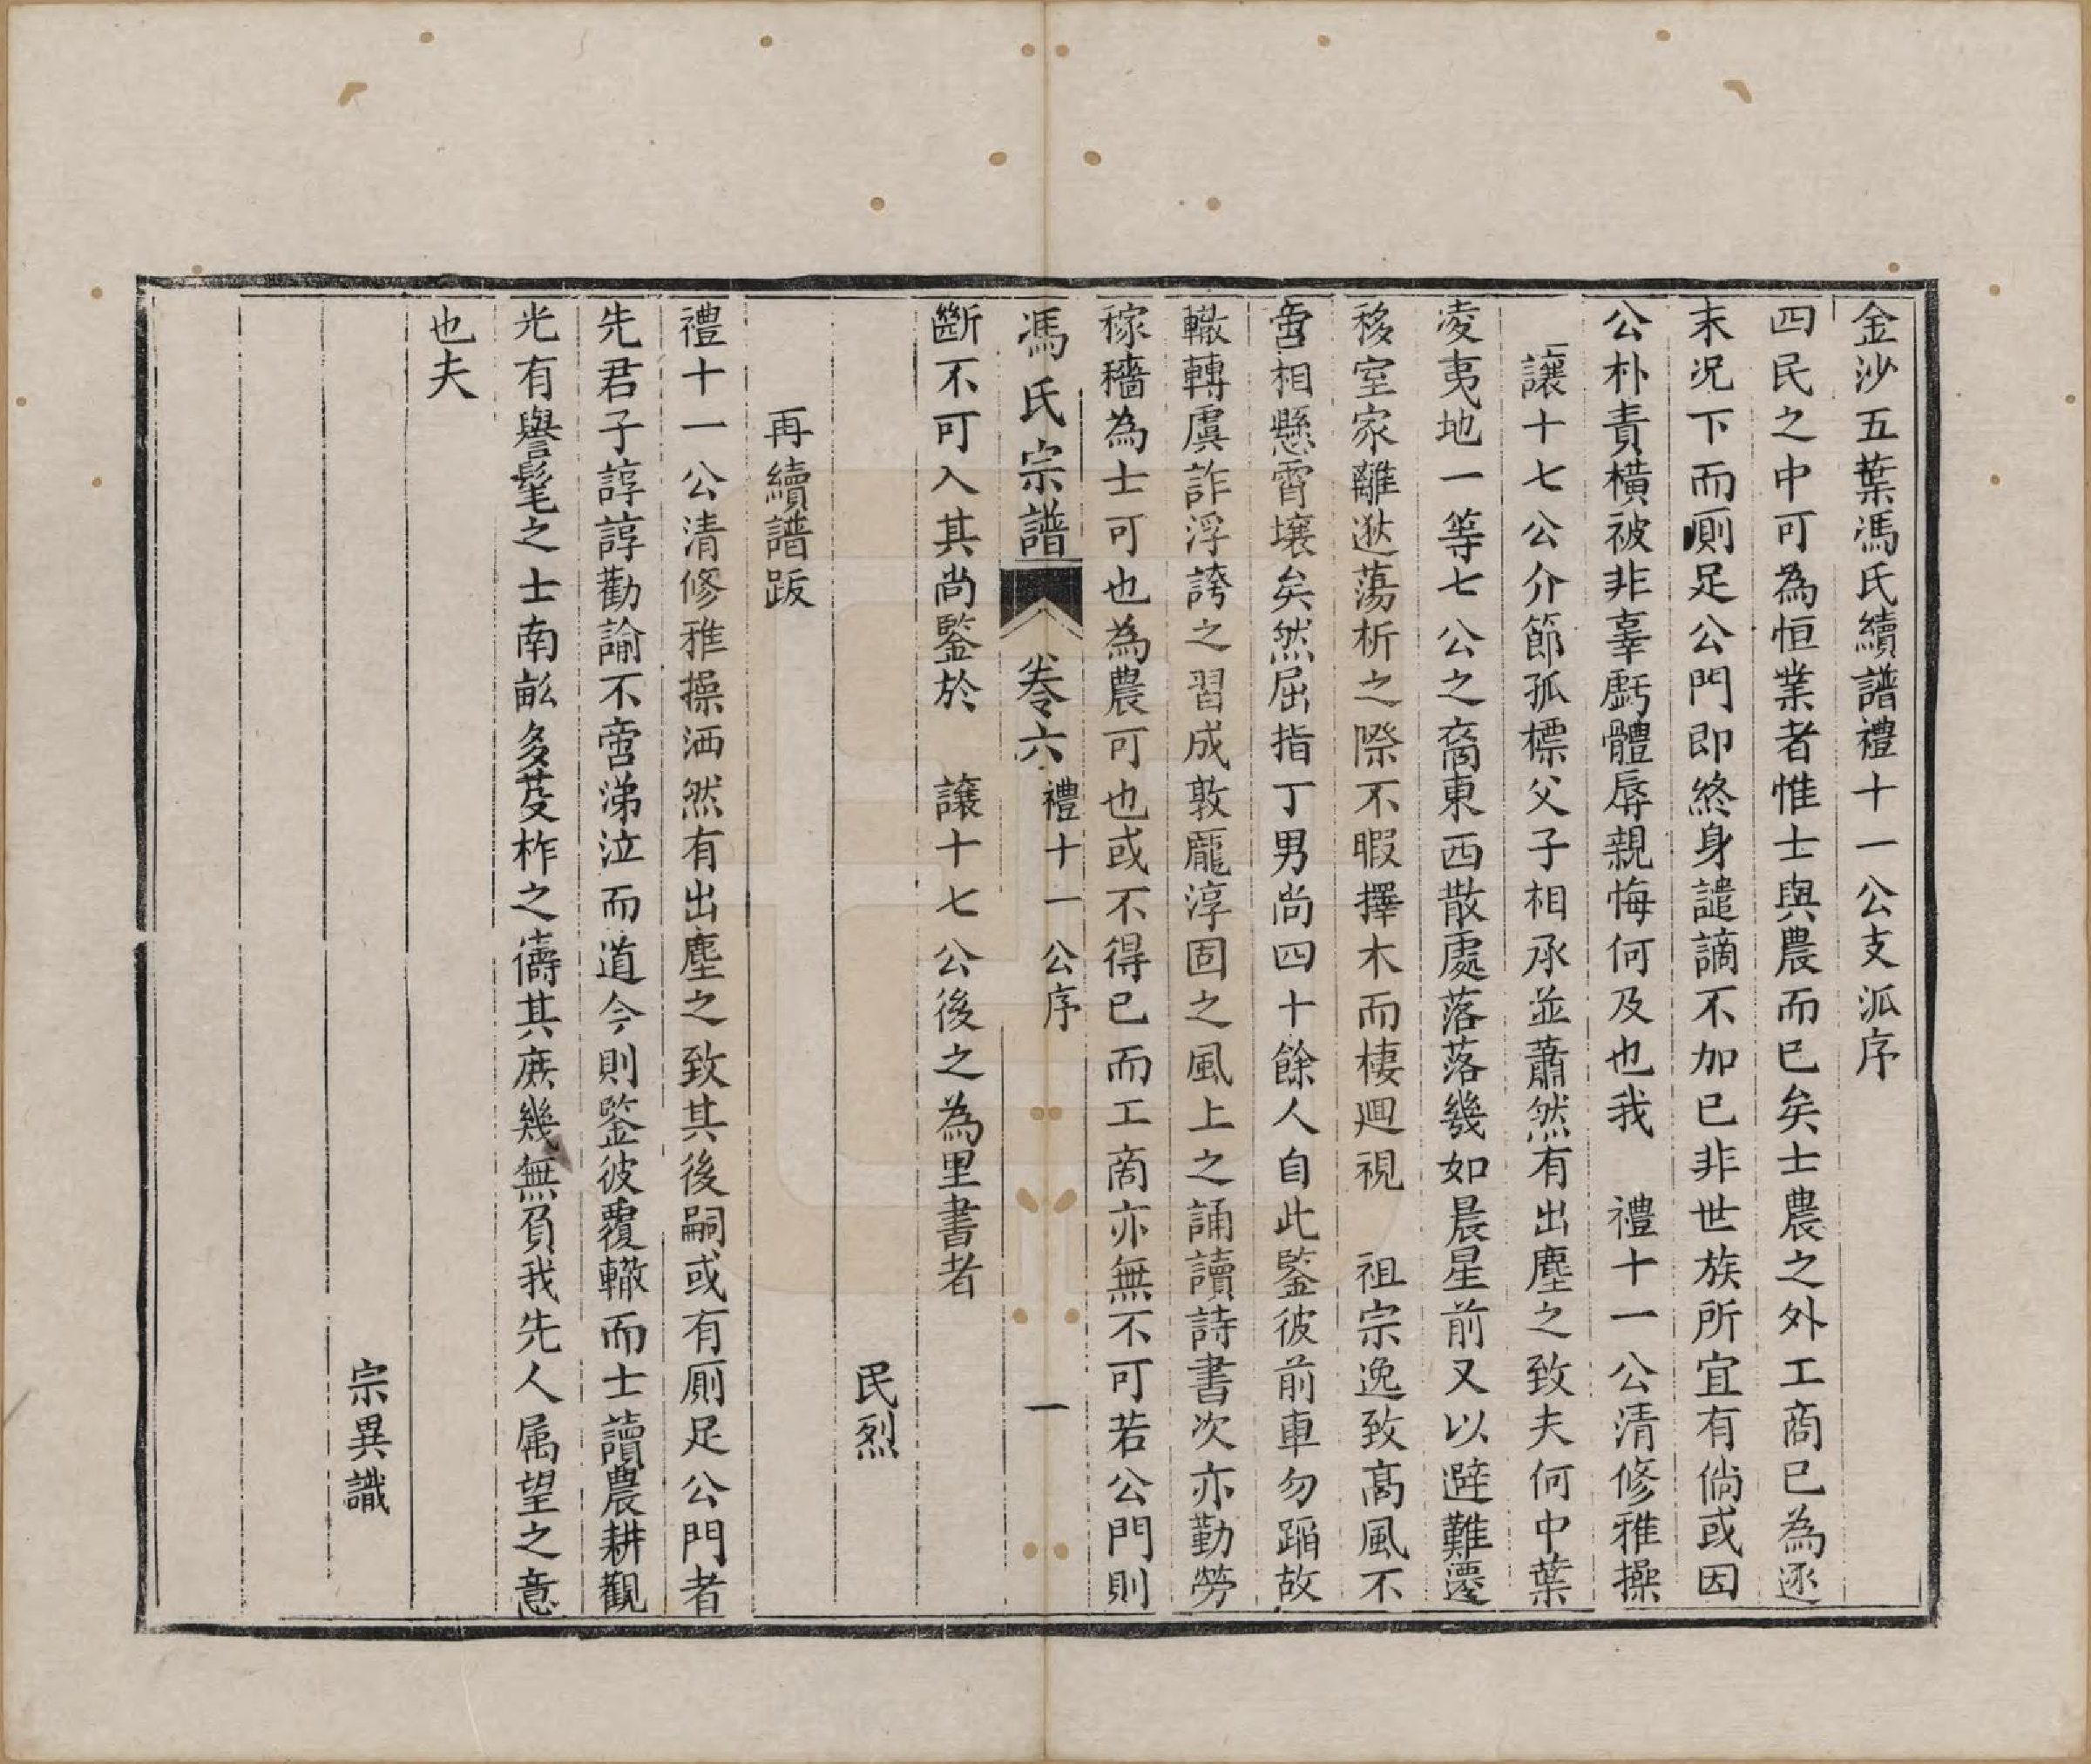 金沙五葉馮氏續譜禮十一公支派序
四民之中可為恒業者惟士與農而已矣士農之外工商已為逐
末況下而厠足公門即終身譴謫不加已非世族所宜有倘或因
公朴責橫被非辜虧體辱親悔何及也我　禮十一公清修雅操
讓十七公介節孤標父子相承並蕭然有出塵之致夫何中葉
凌夷地一等七公之裔東西散處落落幾如晨星前又以避難遷
移室家離逖蕩析之際不暇擇木而棲迴視　祖宗逸致高風不
啻相懸霄壤矣然屈指丁男尚四十餘人自此鑒彼前車勿蹈故
轍轉虞詐浮誇之習成敦龐淳固之風上之誦讀詩書次亦勤勞
稼穡為士可也為農可也或不得已而工商亦無不可若公門則
馮氏宗譜　卷六　禮十一公序　一
斷不可入其尚鑒於　讓十七公後之為里書者
民烈
再續譜跋
禮十一公清修雅操洒然有出塵之致其後嗣或有厠足公門者
先君子諄諄勸諭不啻涕泣而道今則鑒彼覆轍而士讀農耕觀
光有譽髦之士南畝多芟柞之儔其庶幾無負我先人属望之意
也夫
宗異識